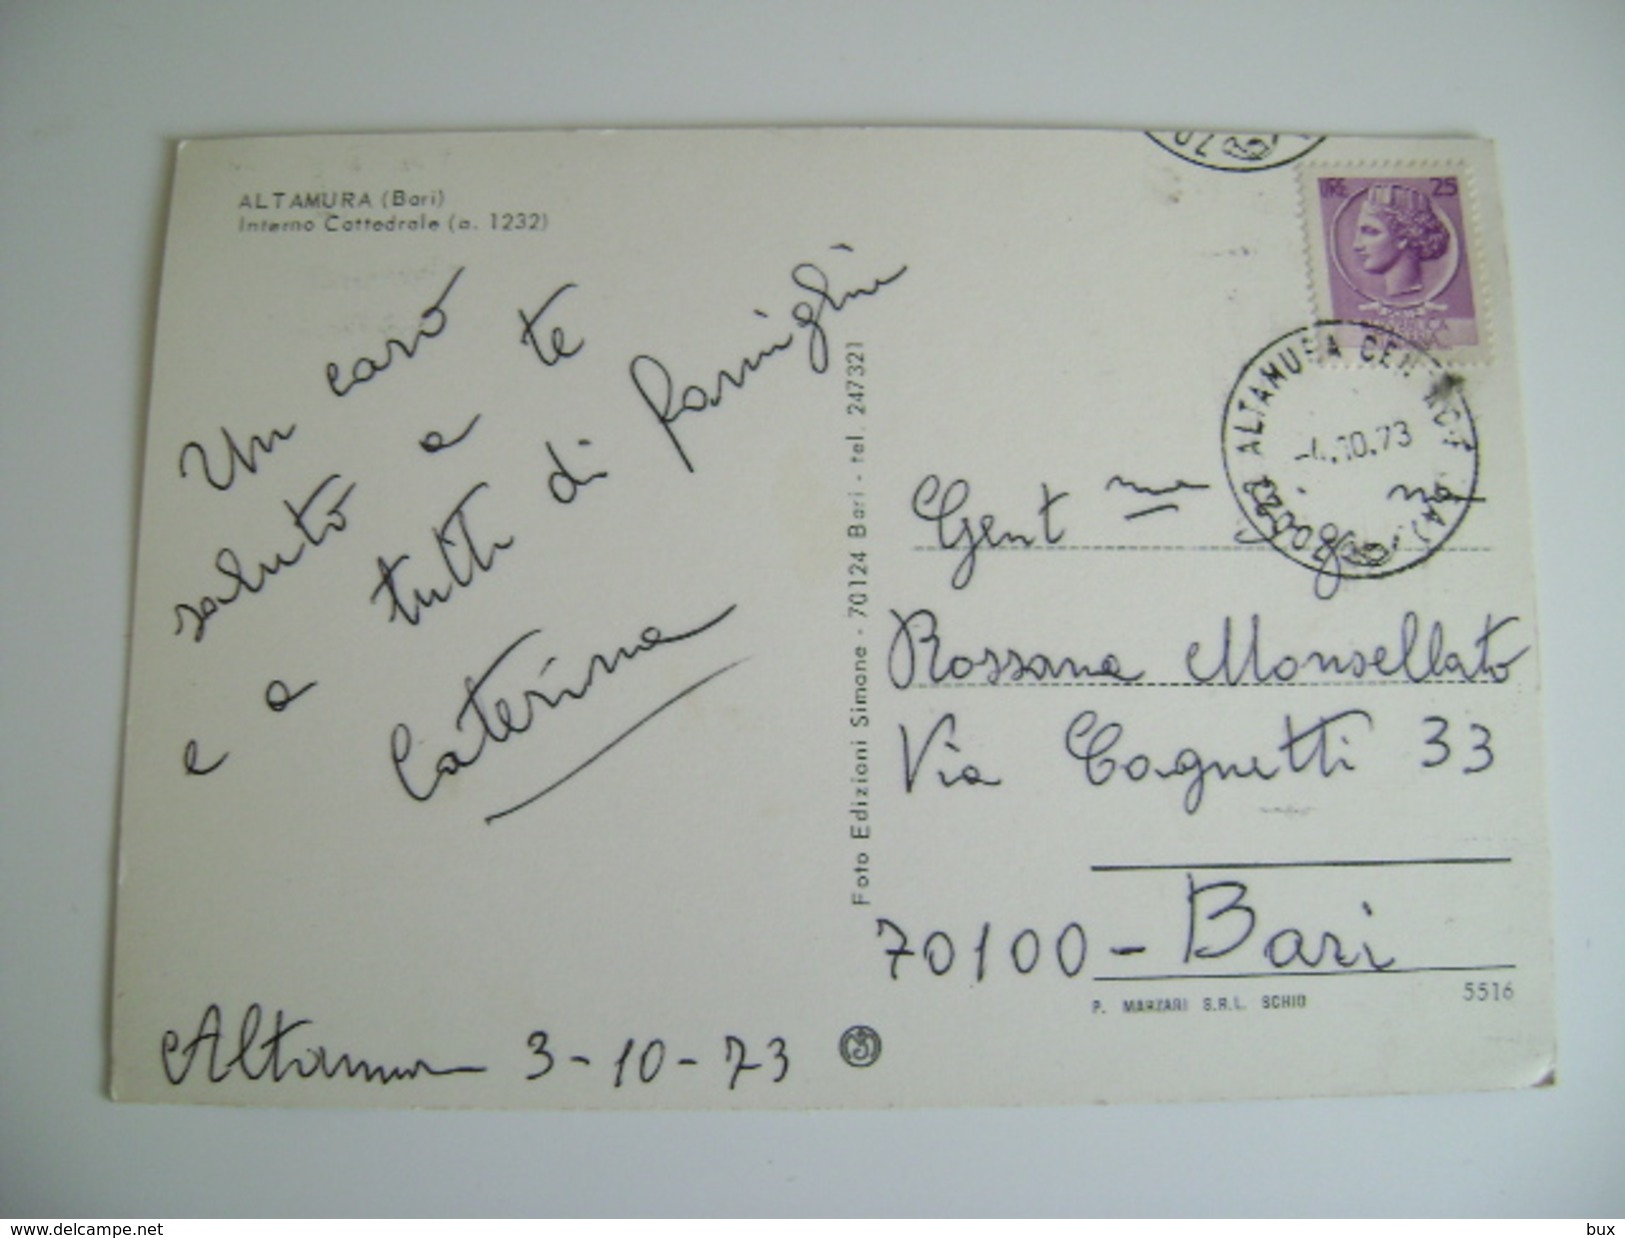 ALTAMURA (Bari)
Interno Cattedrale (a. 1232)
Un caro
saluto a te
e a tutti di famiglia
Caterina
Altamura 3-10-73
Foto Edizioni Simone - 70124 Bari - tel. 247321
LIRE 25
ALTAMURA CEN
-4.10.73
70022
Gent ma Sig. na
Rossana Monsellato
Via Cognetti 33
70100 - Bari
P. MARZARI S.R.L. SCHIO
5516
www.delcampe.net
bux